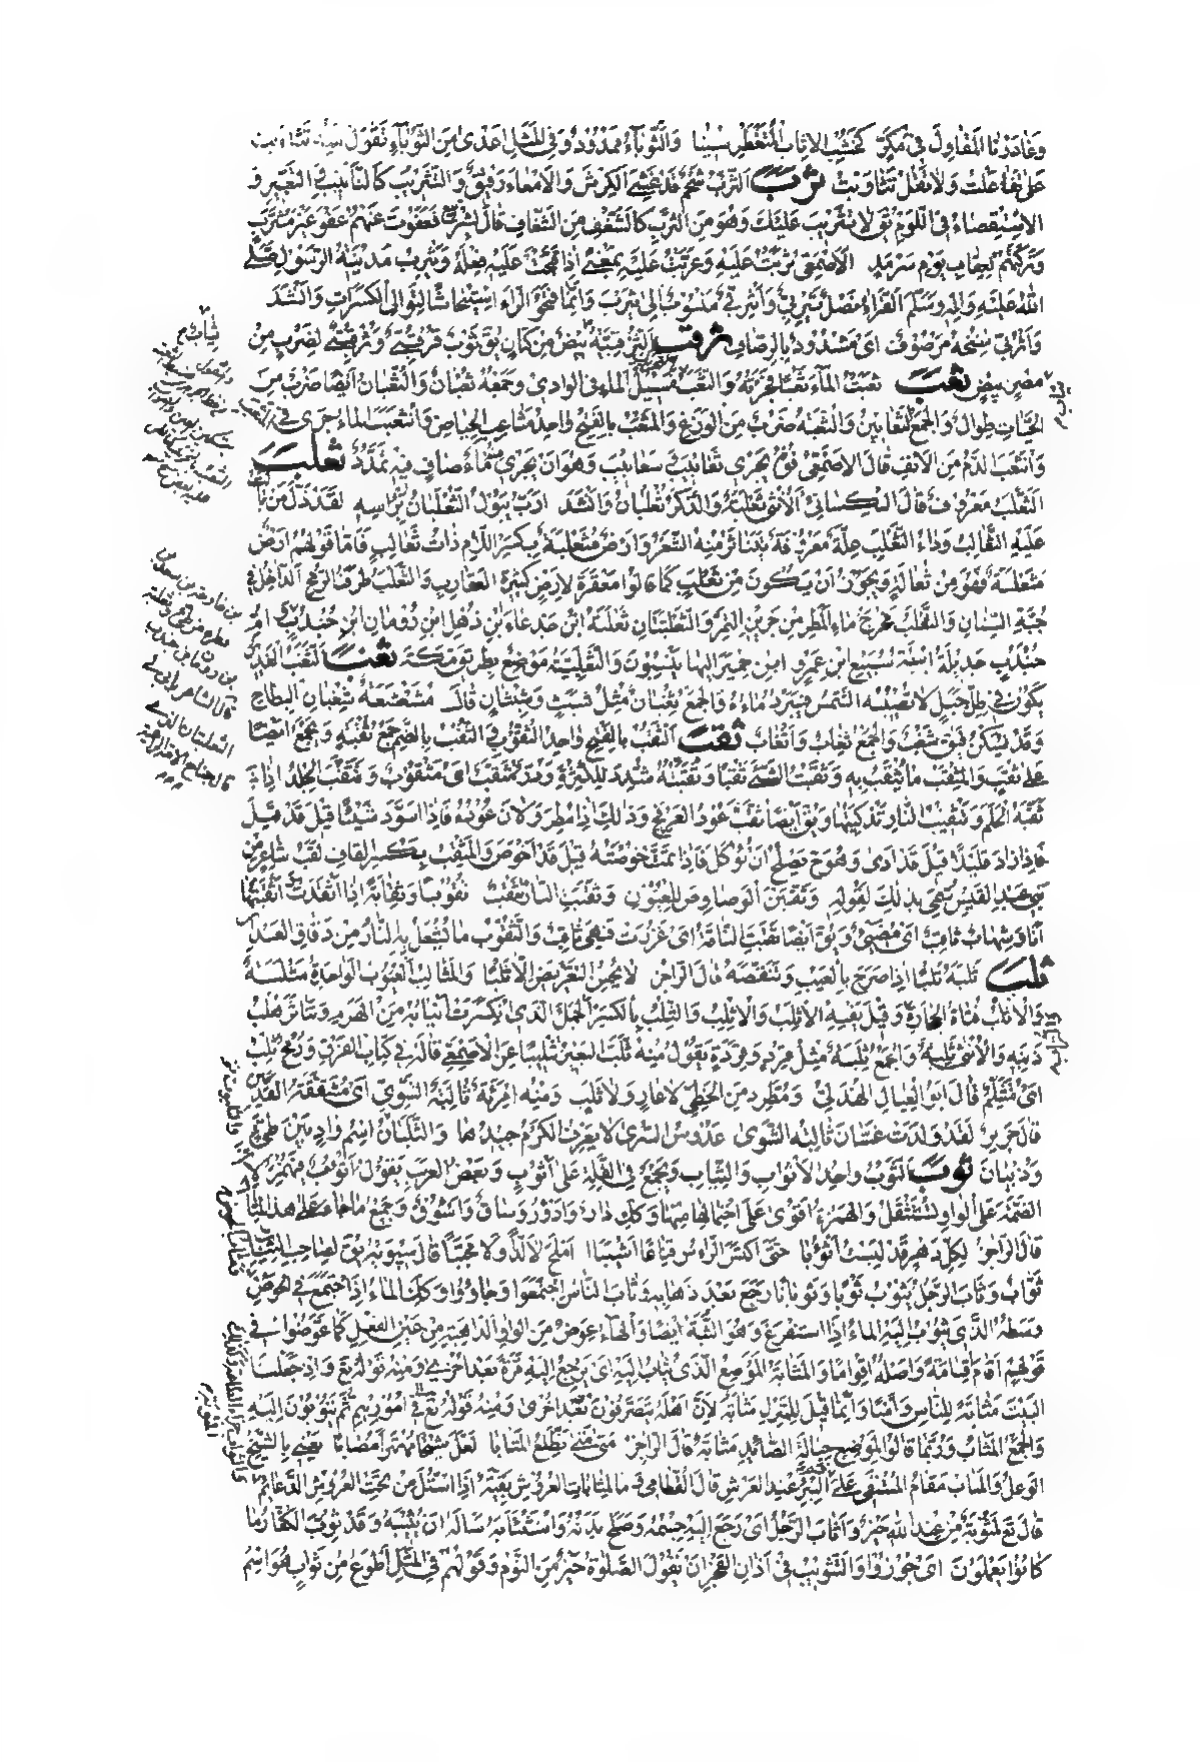 وَغَادَرْنَا الْمَقَاوِلَ فِي مَكَرٍّ كَخُشْبِ الْاَثْأَبِ الْمُتَغَطْرِسِيْنَا وَالثُّوَبَآءُ مَمْدُوْدٌ وَفِي الْمَثَلِ اَعْدٰى مِنَ الثُّوَبَآءِ تَقُوْلُ مِنْهُ تَثَاءَبْتُ
عَلٰى تَفَاعَلْتُ وَلَا تَقُلْ تَثَاوَبْتُ ثرب اَلثَّرْبُ شَحْمٌ قَدْ غَشِيَ الْكَرِشَ وَالْاَمْعَاءَ رَقِيْقٌ وَالتَّثْرِيْبُ كَالتَّأْنِيْبِ وَالتَّعْيِيْرِ وَ
الْاِسْتِقْصَاءُ فِي اللَّوْمِ يُقَ لَا تَثْرِيْبَ عَلَيْكَ وَهُوَ مِنَ الثَّرْبِ كَالشَّغَفِ مِنَ الشَّغَافِ قَالَ بِشْرٌ فَعَفَوْتُ عَنْهُمْ عَفْوَ غَيْرِ مُثَرِّبٍ
وَتَرَكْتُهُمْ لِعِقَابِ يَوْمٍ سَرْمَدٍ الْاَصْمَعِيُّ ثَرَّبْتُ عَلَيْهِ وَعَرَّبْتُ عَلَيْهِ بِمَعْنًى اِذَا قَبَّحْتَ عَلَيْهِ فِعْلَهُ وَيَثْرِبُ مَدِيْنَةُ الرَّسُوْلِ صَلَّى
اللّٰهُ عَلَيْهِ وَاٰلِهِ وَسَلَّمَ الْفَرَّاءُ نَصْلٌ يَثْرِبِيٌّ وَاَثْرِبِيٌّ مَنْسُوْبٌ اِلٰى يَثْرِبَ وَاِنَّمَا فَتَحُوا الرَّاءَ اسْتِيْحَاشًا لِتَوَالِي الْكَسَرَاتِ وَاَنْشَدَ
وَاَثْرَبِيٌّ سِنْخُهُ مَرْصُوْفُ اَيْ مَشْدُوْدٌ بِالرِّصَافِ ثرقب اَلثُّرْقُبِيَّةُ ثِيَابٌ بِيْضٌ مِنْ كَتَّانٍ يُقَ ثَوْبٌ ثُرْقُبِيٌّ وَفُرْقُبِيٌّ لِضَرْبٍ مِنْ
مِصْرَ بِيْضٍ ثعب ثَعَبْتُ الْمَآءَ ثَعْبًا فَجَّرْتُهُ وَالثَّعْبُ مَسِيْلُ الْمَاءِ فِي الْوَادِيْ وَجَمْعُهُ ثُعْبَانٌ وَالثُّعْبَانُ اَيْضًا ضَرْبٌ مِنَ
الْحَيَّاتِ طِوَالٌ وَالْجَمْعُ الثَّعَابِيْنُ وَالثُّعْبَةُ ضَرْبٌ مِنَ الْوَزَغِ وَالْمَثْعَبُ بِالْفَتْحِ وَاحِدُ مَثَاعِبِ الْحِيَاضِ وَانْثَعَبَ الْمَاءُ جَرٰى فِي الْمَثْعَبِ
وَانْثَعَبَ الدَّمُ مِنَ الْاَنْفِ قَالَ الْاَصْمَعِيُّ فُوْهُ يَجْرِيْ ثَعَابِيْبَ سَعَابِيْبَ وَهُوَ اَنْ يَجْرِيَ مِنْهُ مَاءٌ صَافٍ فِيْهِ تَمَدُّدٌ ثعلب
الثَّعْلَبُ مَعْرُوْفٌ قَالَ الْكِسَائِيُّ اَلْاُنْثٰى ثَعْلَبَةٌ وَالذَّكَرُ ثُعْلُبَانٌ وَاَنْشَدَ اَرَبٌّ يَبُوْلُ الثُّعْلُبَانُ بِرَأْسِهِ لَقَدْ ذَلَّ مَنْ بَالَتْ
عَلَيْهِ الثَّعَالِبُ وَدَاءُ الثَّعْلَبِ عِلَّةٌ مَعْرُوْفَةٌ يَتَنَاثَرُ مِنْهُ الشَّعَرُ وَاَرْضٌ مُثَعْلِبَةٌ بِكَسْرِ اللَّامِ ذَاتُ ثَعَالِبَ فَاَمَّا قَوْلُهُمْ اَرْضٌ
مَثْعَلَةٌ فَهُوَ مِنْ ثُعَالَةَ وَيَجُوْزُ اَنْ يَكُوْنَ مِنْ ثَعْلَبٍ كَمَا قَالُوْا مَعْقَرَةٌ لِاَرْضٍ كَثِيْرَةِ الْعَقَارِبِ وَالثَّعْلَبُ طَرَفُ الرُّمْحِ الدَّاخِلُ فِي
جُبَّةِ السِّنَانِ وَالثَّعْلَبُ مَخْرَجُ مَاءِ الْمَطَرِ مِنْ جَرِيْنِ التَّمْرِ وَالثَّعْلَبَتَانِ ثَعْلَبَةُ ابْنُ جَدْعَاءَ بْنِ ذُهْلِ ابْنِ رُوْمَانَ ابْنِ جُنْدُبٍ اُمُّ
جُنْدُبٍ جَدِيْلَةُ ابْنَةُ سُبَيْعِ ابْنِ عَمْرٍو مِنْ حِمْيَرَ اِلَيْهَا يُنْسَبُوْنَ وَالثَّعْلَبِيَّةُ مَوْضِعٌ بِطَرِيْقِ مَكَّةَ ثغب اَلثَّغْبُ الْغَدِيْرُ
يَكُوْنُ فِيْ ظِلِّ جَبَلٍ لَا تُصِيْبُهُ الشَّمْسُ فَيَبْرُدُ مَاءُهُ وَالْجَمْعُ ثِغْبَانٌ مِثْلُ شَبَثٍ وَشِبْثَانٍ قَالَ مُشَعْشَعَةً بِثِغْبَانِ الْبِطَاحِ
وَقَدْ يُسَكَّنُ فَيُقَ ثَغْبٌ وَالْجَمْعُ ثِغَابٌ وَاَثْغَابٌ ثقب اَلثَّقْبُ بِالْفَتْحِ وَاحِدُ الثُّقُوْبِ وَالثُّقْبُ بِالضَّمِّ جَمْعُ ثُقْبَةٍ وَيُجْمَعُ اَيْضًا
عَلٰى ثُقَبٍ وَالْمِثْقَبُ مَا يُثْقَبُ بِهِ وَثَقَبْتُ الشَّيْءَ ثَقْبًا وَثَقَّبْتُهُ شُدِّدَ لِلْكَثْرَةِ وَدُرٌّ مُثَقَّبٌ اَيْ مَثْقُوْبٌ وَتَثَقَّبَ الْجِلْدُ اِذَا
ثَقَّبَهُ الْحَلَمُ وَتَثْقِيْبُ النَّارِ تَذْكِيَتُهَا وَيُقَ اَيْضًا ثَقَّبَ عُوْدُ الْعَرْفَجِ وَذٰلِكَ اِذَا مُطِرَ وَلَانَ عُوْدُهُ فَاِذَا اسْوَدَّ شَيْئًا قِيْلَ قَدْ قَمِلَ
فَاِذَا زَادَ قَلِيْلًا قِيْلَ قَدْ اَدْبٰى وَهُوَ حِيْنَئِذٍ يَصْلُحُ اَنْ يُؤْكَلَ فَاِذَا تَمَّتْ خُوْصَتُهُ قِيْلَ قَدْ اَخْوَصَ وَالْمُثَقِّبُ بِكَسْرِ الْقَافِ لَقَبُ شَاعِرٍ مِنْ
بَنِيْ عَبْدِ الْقَيْسِ سُمِّيَ بِذٰلِكَ لِقَوْلِهِ وَثَقَّبْنَ الْوَصَاوِصَ لِلْعُيُوْنِ وَثَقَبَتِ النَّارُ تَثْقُبُ ثُقُوْبًا وَثَقَابَةً اِذَا اتَّقَدَتْ وَاَثْقَبْتُهَا
اَنَا وَشِهَابٌ ثَاقِبٌ اَيْ مُضِيْءٌ وَيُقَ اَيْضًا ثَقَبَتِ النَّاقَةُ اَيْ غَزُرَتْ فَهِيَ ثَاقِبٌ وَالثَّقُوْبُ مَا تُشْعَلُ بِهِ النَّارُ مِنْ دُقَاقِ الْعِيْدَانِ
ثلب ثَلَبَهُ ثَلْبًا اِذَا صَرَّحَ بِالْعَيْبِ وَتَنَقَّصَهُ قَالَ الرَّاجِزُ لَا يُحْسِنُ التَّعْرِيْضَ اِلَّا ثَلْبًا وَالْمَثَالِبُ الْعُيُوْبُ الْوَاحِدَةُ مَثْلَبَةٌ
وَالْاَثْلَبُ فُتَاتُ الْحِجَارَةِ وَقِيْلَ بِفِيْهِ الْاَثْلَبُ وَالْاِثْلِبُ وَالثِّلْبُ بِالْكَسْرِ الْجَمَلُ الَّذِيْ تَكَسَّرَتْ اَنْيَابُهُ مِنَ الْهَرَمِ وَتَنَاثَرَ هُلْبُ
ذَنَبِهِ وَالْاُنْثٰى ثِلْبَةٌ وَالْجَمْعُ ثِلَبَةٌ مِثْلُ قِرْدٍ وَقِرَدَةٍ تَقُوْلُ مِنْهُ ثَلَّبَ الْبَعِيْرُ تَثْلِيْبًا عَنِ الْاَصْمَعِيِّ قَالَهُ فِيْ كِتَابِ الْفَرْقِ وَرُمْحٌ ثَلِبٌ
اَيْ مُتَثَلِّمٌ قَالَ اَبُوْ الْعِيَالِ الْهُذَلِيُّ وَمُطَّرِدٌ مِنَ الْخَطِّيِّ لَا عَارٍ وَلَا ثَلِبُ وَمِنْهُ امْرَأَةٌ ثَالِبَةُ الشَّوٰى اَيْ مُتَشَقِّقَةُ الْقَدَمَيْنِ
قَالَ جَرِيْرٌ لَقَدْ وَلَدَتْ غَسَّانَ ثَالِبَةُ الشَّوٰى عَدُوْسُ السُّرٰى لَا يَعْرِفُ الْكَرْمَ جِيْدُهَا وَالثَّلَبُوْتُ اسْمُ وَادٍ بَيْنَ طَيِّئٍ
وَذُبْيَانَ ثوب اَلثَّوْبُ وَاحِدُ الْاَثْوَابِ وَالثِّيَابِ وَيُجْمَعُ فِي الْقِلَّةِ عَلٰى اَثْوُبٍ وَبَعْضُ الْعَرَبِ يَقُوْلُ اَثْؤُبٌ فَيَهْمِزُ لِاَنَّ
الضَّمَّةَ عَلَى الْوَاوِ تُسْتَثْقَلُ وَالْهَمْزَةُ اَقْوٰى عَلَى احْتِمَالِهَا مِنْهَا وَكَذٰلِكَ دَارٌ وَاَدْؤُرٌ وَسَاقٌ وَاَسْؤُقٌ وَجَمِيْعُ مَا جَاءَ عَلٰى هٰذَا الْمِثَالِ
قَالَ الرَّاجِزُ لِكُلِّ دَهْرٍ قَدْ لَبِسْتُ اَثْؤُبًا حَتّٰى اكْتَسَى الرَّأْسُ قِنَاعًا اَشْيَبَا اَمْلَحَ لَا لَذًّا وَلَا مُحَبَّبًا قَالَ سِيْبَوَيْهِ يُقَ لِصَاحِبِ الثِّيَابِ
ثَوَّابٌ وَثَابَ الرَّجُلُ يَثُوْبُ ثَوْبًا وَثَوَبَانًا رَجَعَ بَعْدَ ذَهَابِهِ وَثَابَ النَّاسُ اجْتَمَعُوْا وَجَاؤُوْا وَكَذٰلِكَ الْمَاءُ اِذَا اجْتَمَعَ فِي الْحَوْضِ
وَسَطُهُ الَّذِيْ يَثُوْبُ اِلَيْهِ الْمَاءُ اِذَا اسْتُفْرِغَ وَهُوَ الثُّبَةُ اَيْضًا وَالْهَاءُ عِوَضٌ مِنَ الْوَاوِ الذَّاهِبَةِ مِنْ عَيْنِ الْفِعْلِ كَمَا عَوَّضُوْا فِيْ
قَوْلِهِمْ اَقَامَ اِقَامَةً وَاَصْلُهُ اِقْوَامًا وَالْمَثَابَةُ الْمَوْضِعُ الَّذِيْ يُثَابُ اِلَيْهِ اَيْ يُرْجَعُ اِلَيْهِ مَرَّةً بَعْدَ اُخْرٰى وَمِنْهُ قَوْلُهُ تَعَ وَاِذْ جَعَلْنَا
الْبَيْتَ مَثَابَةً لِلنَّاسِ وَاَمْنًا وَاِنَّمَا قِيْلَ لِلْمَنْزِلِ مَثَابَةٌ لِاَنَّ اَهْلَهُ يَتَصَرَّفُوْنَ فِيْ اُمُوْرِهِمْ ثُمَّ يَثُوْبُوْنَ اِلَيْهِ
وَالْجَمْعُ الْمَثَابُ وَرُبَّمَا قَالُوْا لِمَوْضِعِ حِبَالَةِ الصَّائِدِ مَثَابَةٌ قَالَ الرَّاجِزُ مَتٰى مَتٰى تُطَّلَعُ الْمَثَابَا لَعَلَّ شَيْخًا مُهْتَرًا مُصَابَا يَعْنِيْ بِالشَّيْخِ
الْوَعِلَ وَالْمَثَابُ مَقَامُ الْمُسْتَقِيْ عَلٰى فَمِ الْبِئْرِ عِنْدَ الْعَرْشِ قَالَ الْقُطَامِيُّ وَمَا لِمَثَابَاتِ الْعُرُوْشِ بَقِيَّةٌ اِذَا اسْتُلَّ مِنْ تَحْتِ الْعُرُوْشِ الدَّعَائِمُ
قَالَ تَعَ لَمَثُوْبَةٌ مِنْ عِنْدِ اللّٰهِ خَيْرٌ وَاَثَابَ الرَّجُلُ اَيْ رَجَعَ اِلَيْهِ جِسْمُهُ وَصَلَحَ بَدَنُهُ وَاسْتَثَابَهُ سَاَلَهُ اَنْ يُثِيْبَهُ وَقَدْ ثُوِّبَ الْكُفَّارُ مَا
كَانُوْا يَعْمَلُوْنَ اَيْ جُوْزُوْا وَالتَّثْوِيْبُ فِيْ اَذَانِ الْفَجْرِ اَنْ تَقُوْلَ الصَّلٰوةُ خَيْرٌ مِنَ النَّوْمِ وَقَوْلُهُمْ فِي الْمَثَلِ اَطْوَعُ مِنْ ثَوَابٍ هُوَ اسْمُ